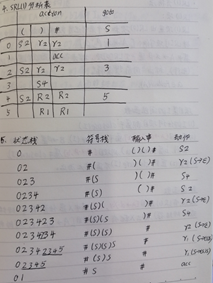 4. SLR(1)分析表
action goto
( ) # S
0 S2 r2 r2 1
1 acc
2 S2 r2 r2 3
3 S4
4 S2 R2 R2 5
5 R1 R1
5. 状态栈 符号栈 输入串 动作
0 # ( ) ( ) # S2
02 #( ) ( ) # r2 (S→ε)
023 #(S ) ( ) # S4
0234 #(S) ( ) # S2
02342 #(S)( ) # r2 (S→ε)
023423 #(S)(S ) # S4
0234234 #(S)(S) # r2 (S→ε)
02342345 #(S)(S)S #
02345 #(S)S #
01 #S # acc